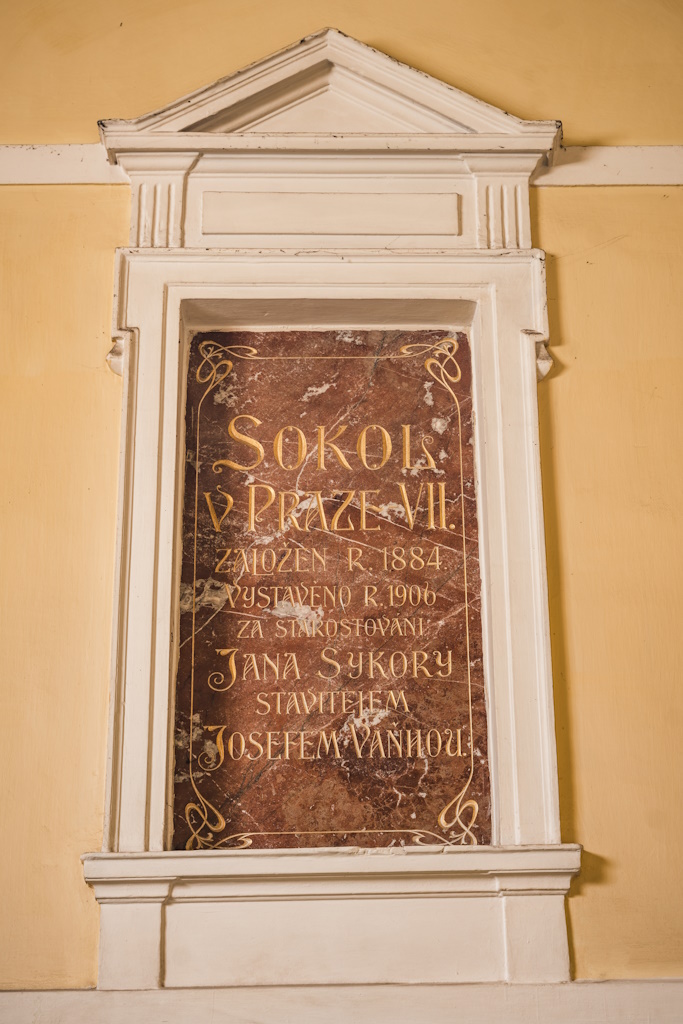 SOKOL
V PRAZE VII.
ZALOŽEN R. 1884.
VYSTAVĚNO R. 1906
ZA STAROSTOVÁNÍ
JANA SÝKORY
STAVITELEM
JOSEFEM VAŇHOU.